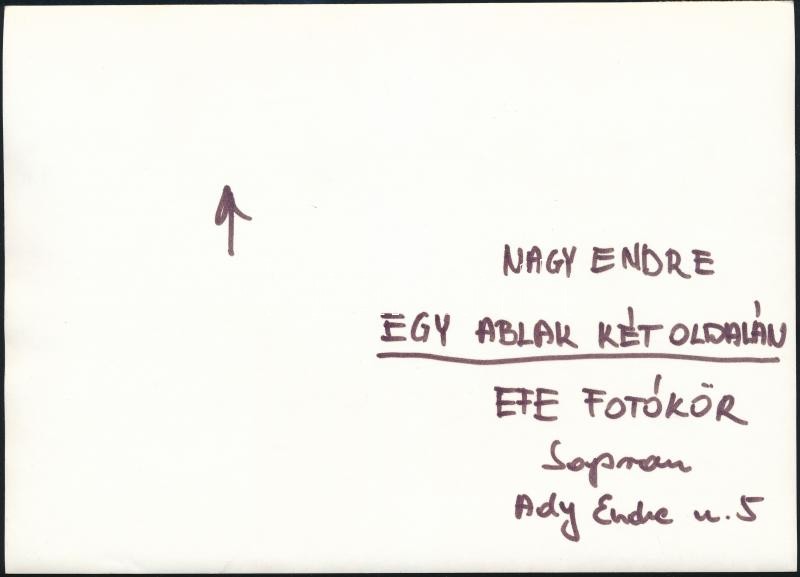 NAGY ENDRE
EGY ABLAK KÉT OLDALÁN
EFE FOTÓKÖR
Sopron
Ady Endre u. 5